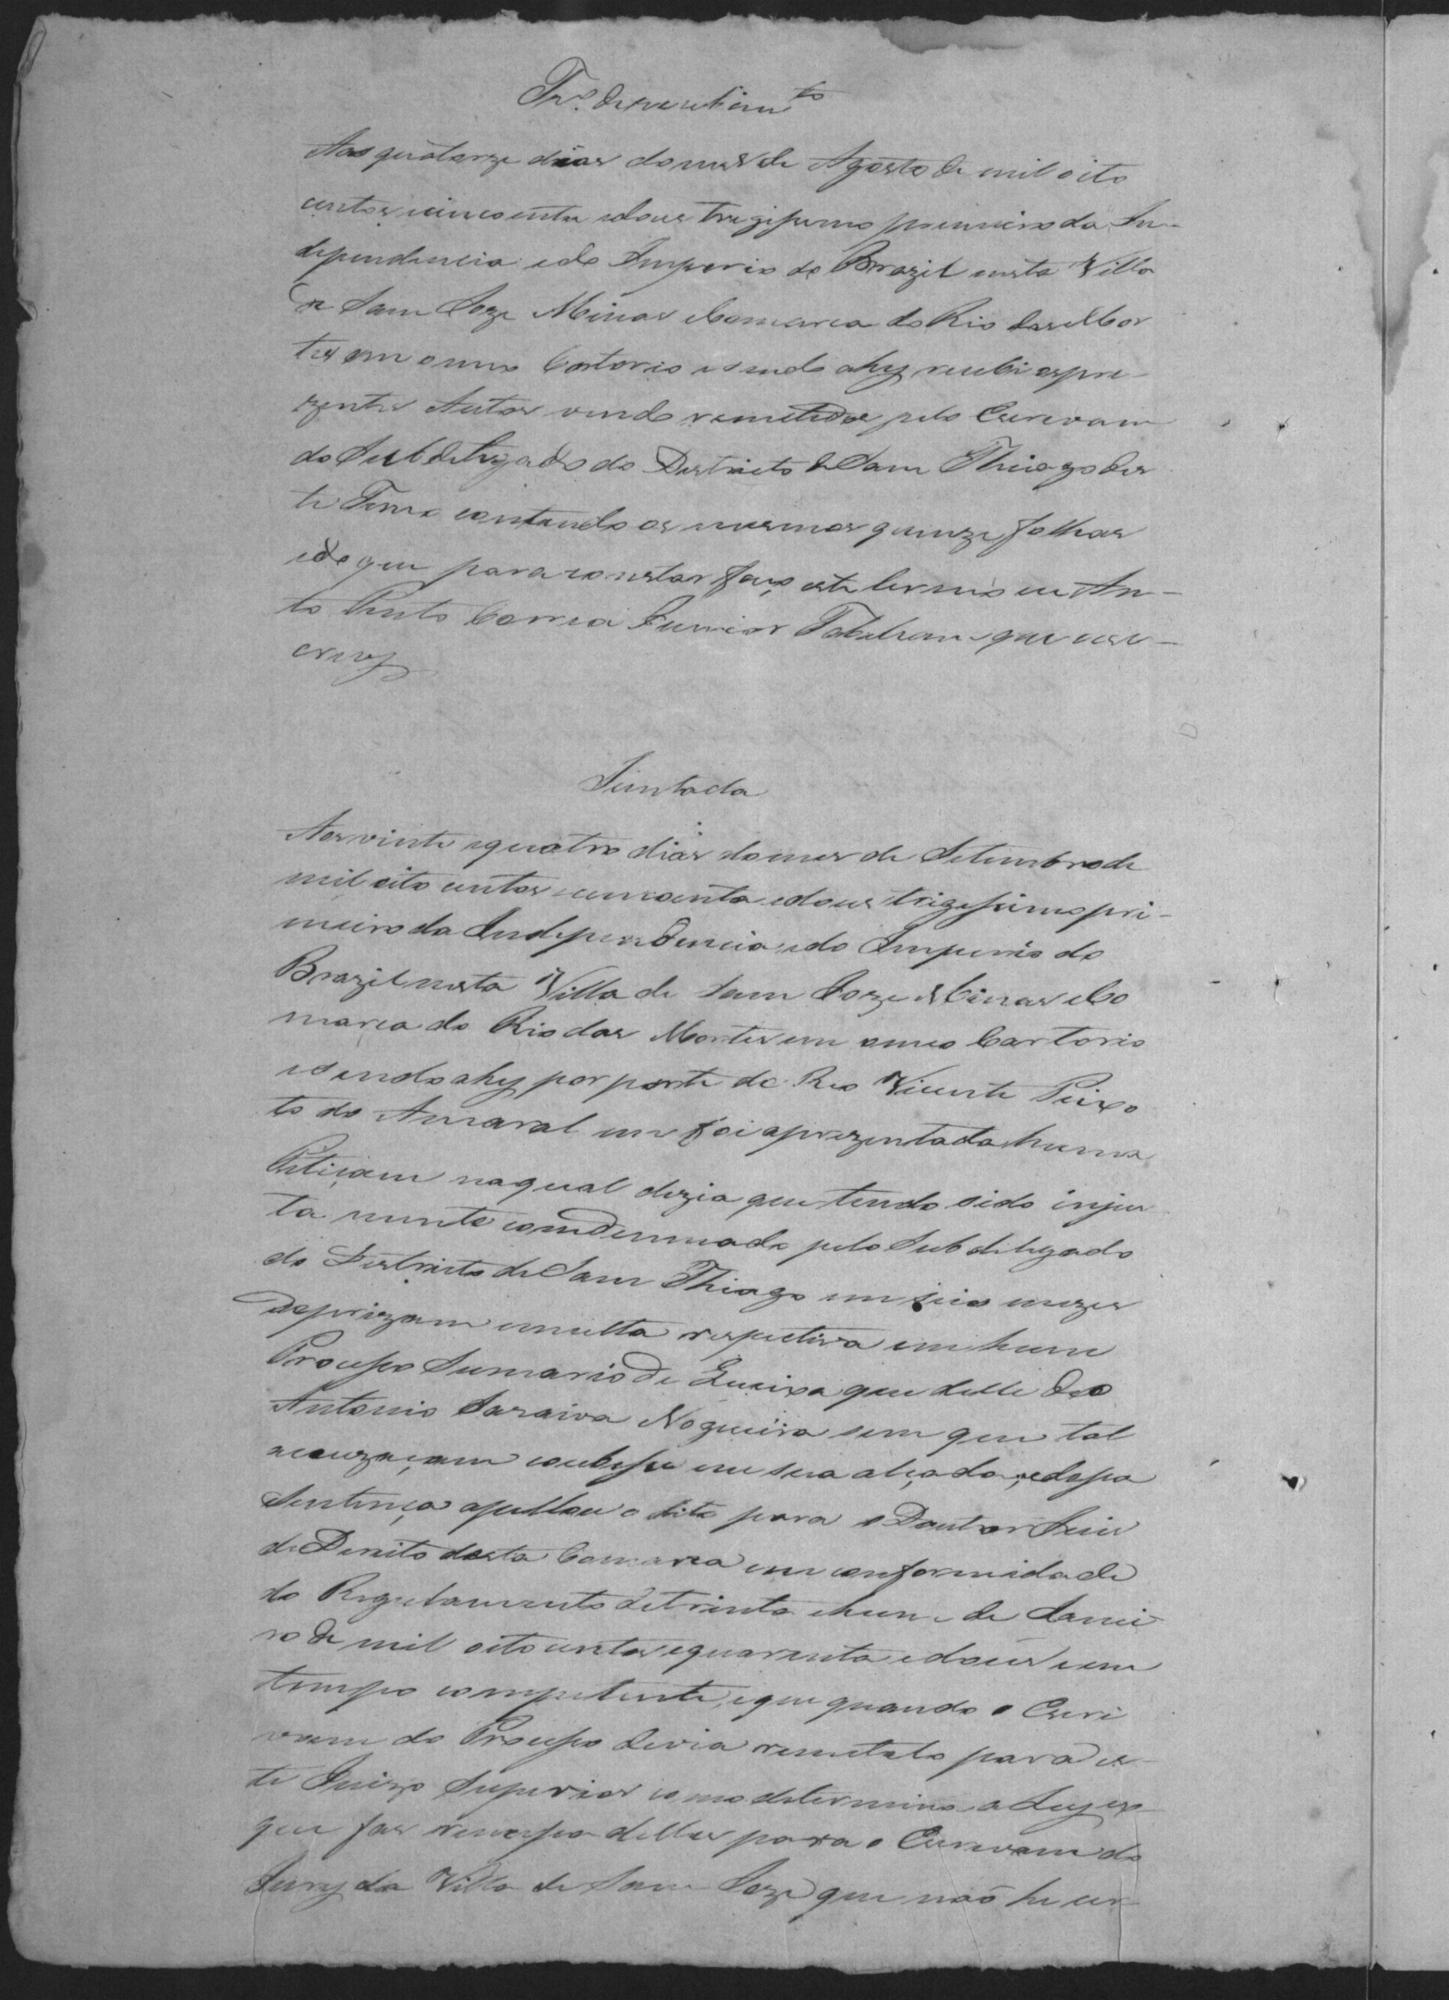 Tr.º de recebim.to
Aos quatorze dias do mes de Agosto de mil oito
centos cincoenta e dous trigessimo primeiro da In-
dependencia e do Imperio do Brazil nesta Villa
de Sam Joze Minas e Comarca do Rio das Mor
tes em o meu Cartorio e sendo ahy recebi os pre-
zentes Autos vindo remetidos pelo Escrivam
do Subdelegado do Destricto de Sam Thiago des
te Termo contendo os mesmos quinze folhas
e do que para constar faço este termo eu An-
to Pinto Correa Junior Tabeliam que o es-
crevy
Juntada
Aos vinte e quatro dias do mes de Setembro de
mil oito centos cincoenta e dous trigessimo pri-
meiro da Independencia e do Imperio do
Brazil nesta Villa de Sam Joze Minas e Co
marca do Rio das Mortes em o meu Cartorio
e sendo ahy por parte do Reo Vicente Peixo
to do Amaral me foi aprezentada huma
Petiçam na qual dizia que tendo sido injus
ta mente comdemnado pelo Subdelegado
do Destricto de Sam Thiago em seis mezes
de prizam e multa respectiva em hum
Processo Sumario de Queixa que delle deo
Antonio Saraiva Nogueira sem que tal
acuzaçam coubesse em sua alçada, e dessa
Sentença apellou o dito para o Doutor Juis
de Direito desta Comarca em conformidade
do Regulamento de trinta e hum de Janei
ro de mil oito centos e quarenta e dous e em
tempo competente, e que quando o Escri
vam do Processo devia remetelo para es-
te Juizo Superior como determina a Ley es-
que fas remessa delles para o Escrivam do
Jury da Villa de Sam Joze que não he es-